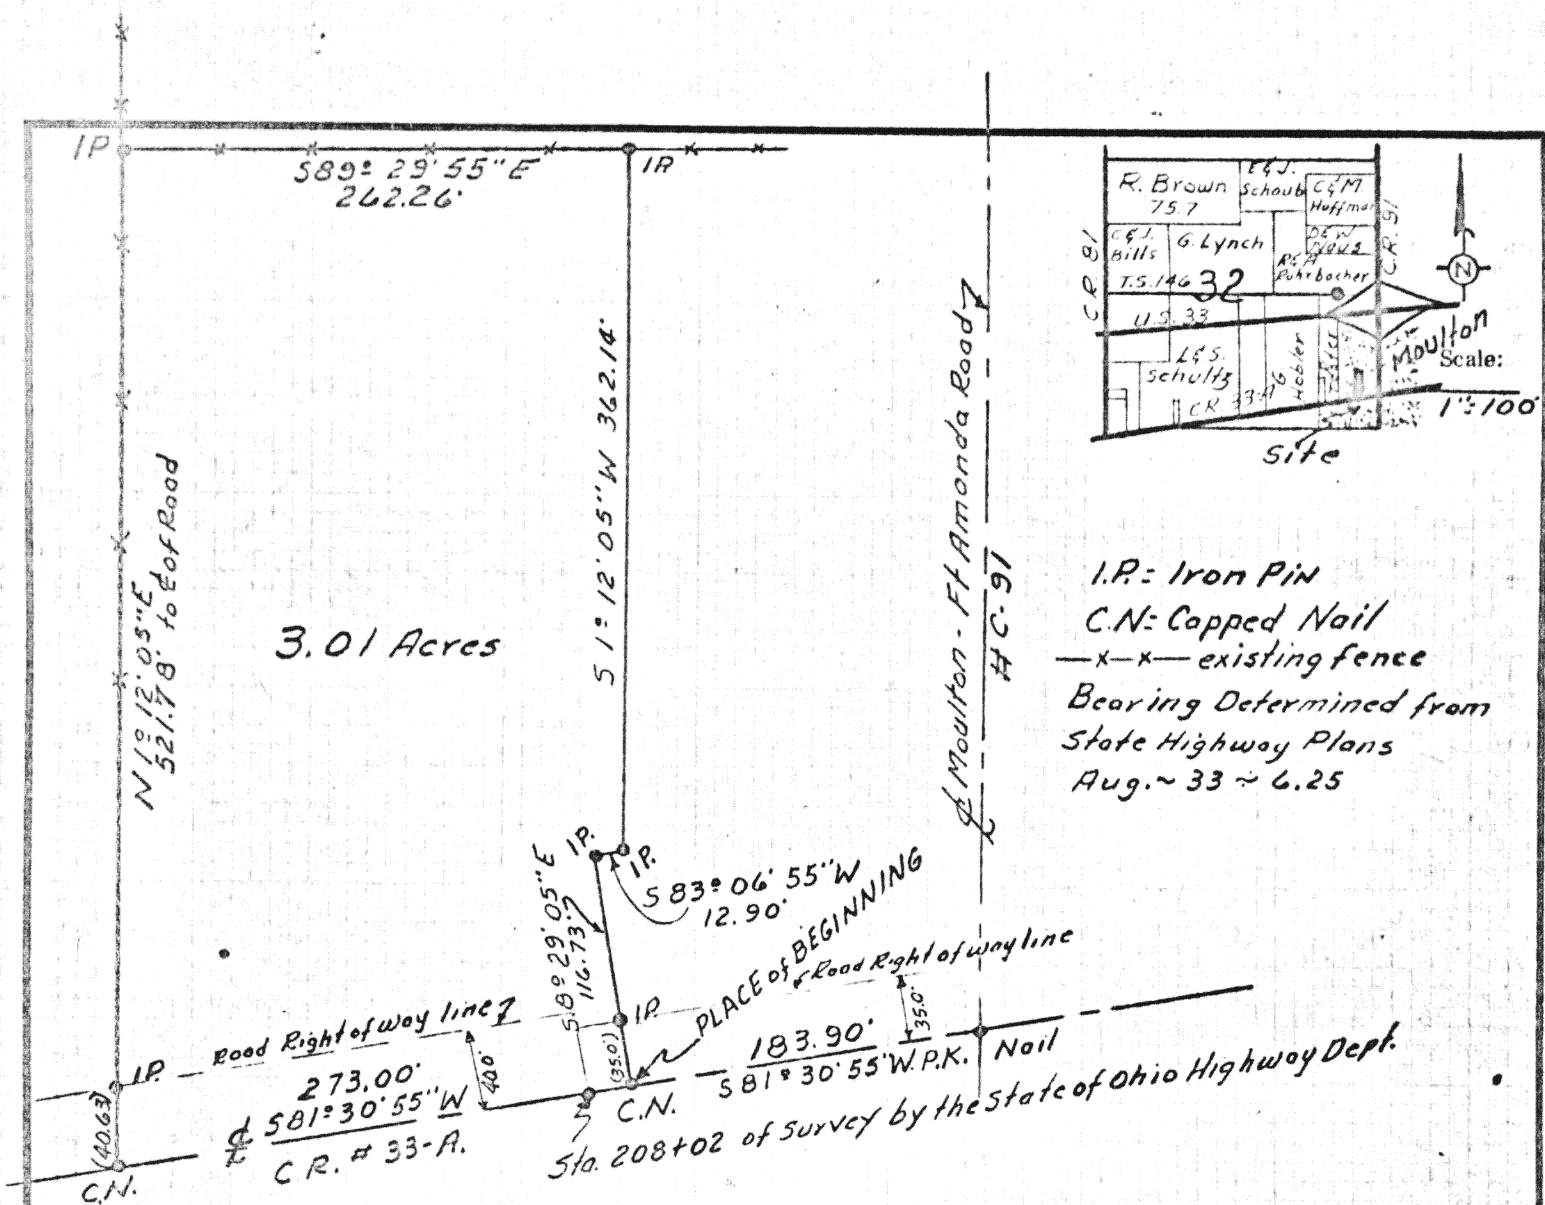 I.P.
I.P.
S89° 29' 55" E
262.26'
N 1° 12' 05" E
521.78' to ℄ of Road
S 1° 12' 05" W 362.14'
3.01 Acres
℄ Moulton - Ft Amonda Road
# C-91
R. Brown
75.7
E&J.
Schaub
C&M
Huffman
C&J.
Bills
G. Lynch
D&W
R&A
Rohrbacher
T.S. 146
32
C.R. 81
C.R. 91
U.S. 33
L&S.
Schultz
G
Hobler
CR 33-A
Moulton
N
Scale:
1"=100'
Site
I.P.= Iron Pin
C.N.= Capped Nail
—x—x— existing fence
Bearing Determined from
State Highway Plans
Aug. ~ 33 ~ 6.25
I.P.
I.P.
S 83° 06' 55" W
12.90'
S 8° 29' 05" E
116.73'
PLACE of BEGINNING
Road Right of way line
35.0'
I.P.
(35.0')
183.90'
S 81° 30' 55" W. P.K. Nail
Road Right of way line
I.P.
273.00'
40.0'
℄ S81° 30' 55" W
C.R. # 33-A.
(40.63)
C.N.
C.N.
Sta. 208+02 of Survey by the State of Ohio Highway Dept.